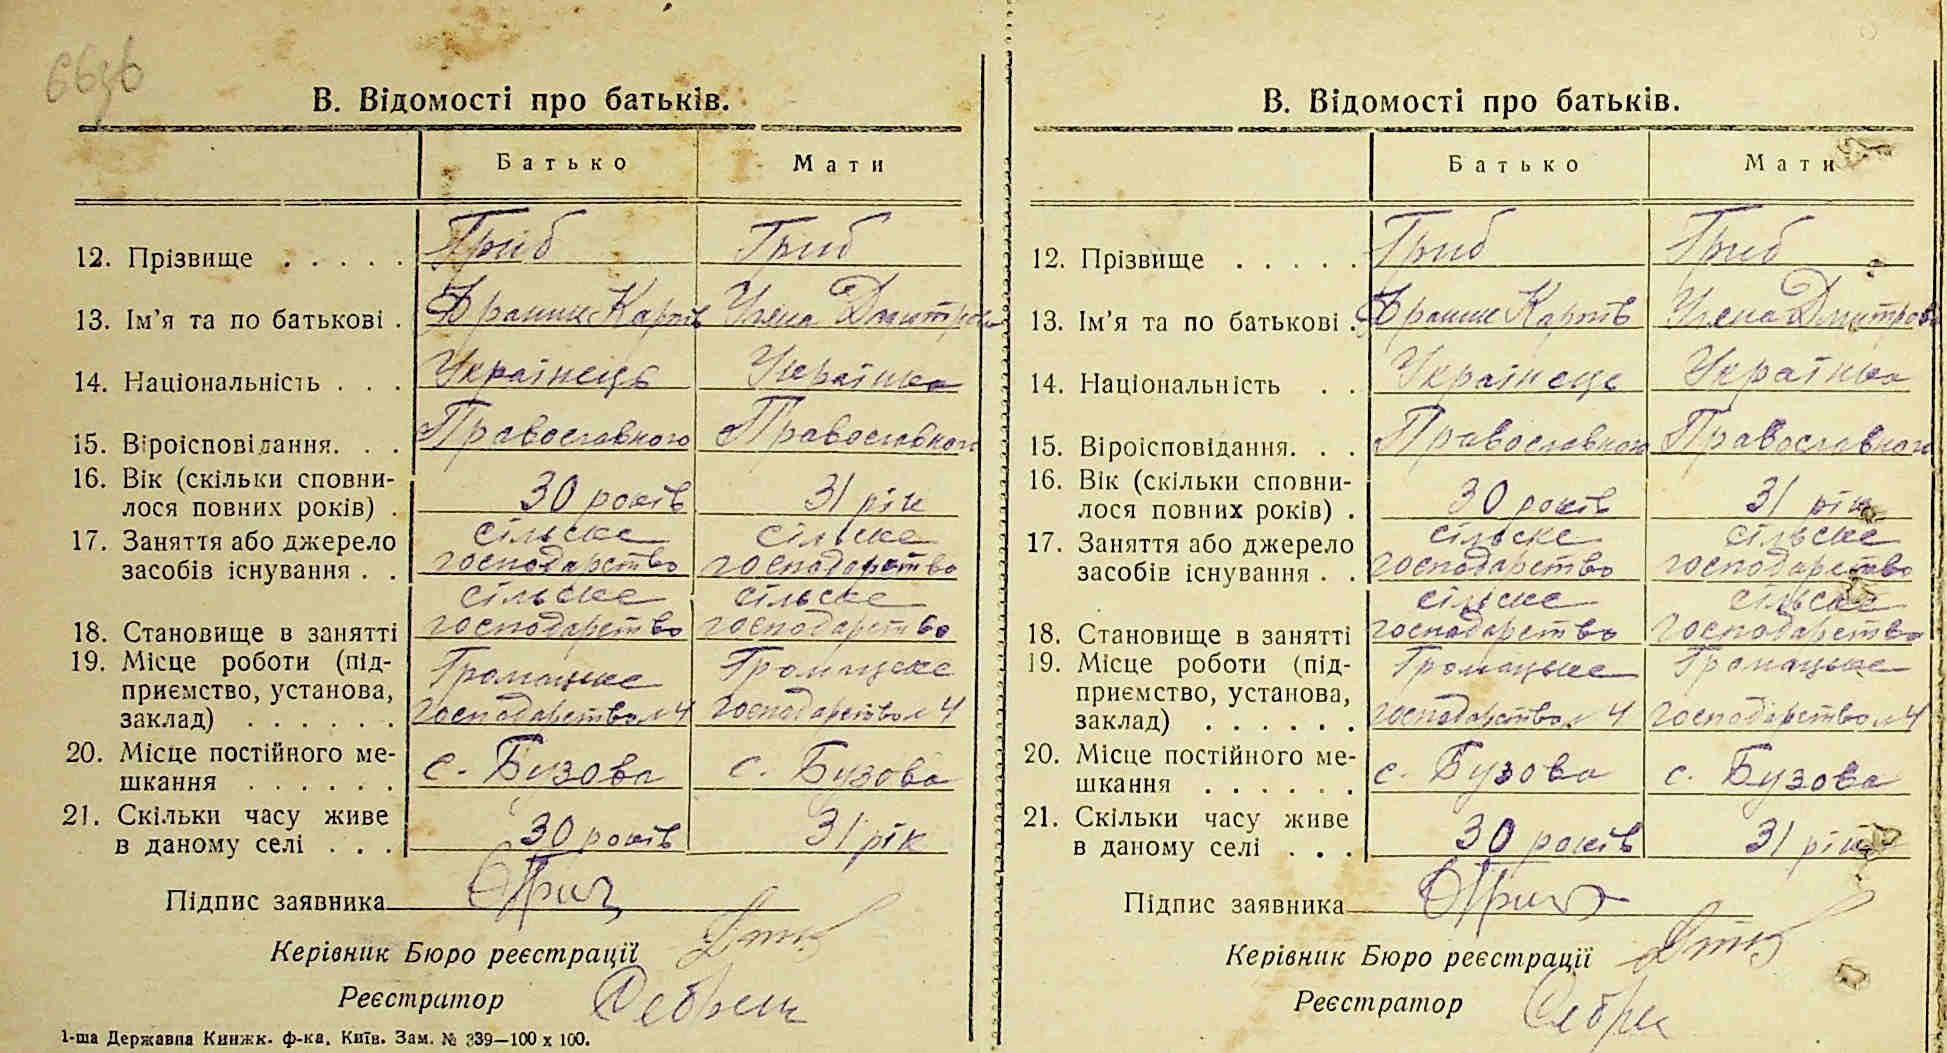 663б
В. Відомості про батьків.
Батько Мати
12. Прізвище . . . . . Гриб Гриб
13. Ім'я та по батькові . Франик Карпів Уляна Дмитрова
14. Національність . . . Українець Українка
15. Віроісповідання. . . Православного Православного
16. Вік (скільки сповни-
лося повних років) . 30 років 31 рік
17. Заняття або джерело сільске сільске
засобів існування . . господарство господарство
сільске сільске
18. Становище в занятті господарство господарство
19. Місце роботи (під- Громацьке Громацьке
приємство, установа,
заклад) . . . . . . господарство №4 господарство №4
20. Місце постійного ме-
шкання . . . . . . с. Бузова с. Бузова
21. Скільки часу живе
в даному селі . . . 30 років 31 рік
Підпис заявника
Керівник Бюро реєстрації
Реєстратор
1-ша Державна Книжк. ф-ка, Київ. Зам. № 339—100 х 100.
В. Відомості про батьків.
Батько Мати
12. Прізвище . . . . . Гриб Гриб
13. Ім'я та по батькові . Франик Карпів Уляна Дмитрова
14. Національність . . Українець Українка
15. Віроісповідання. . . Православного Православного
16. Вік (скільки сповни-
лося повних років) . 30 років 31 рік
17. Заняття або джерело сільске сільске
засобів існування . . господарство господарство
сільске сільске
18. Становище в занятті господарство господарство
19. Місце роботи (під- Громацьке Громацьке
приємство, установа,
заклад) . . . . . . господарство №4 господарство №4
20. Місце постійного ме-
шкання . . . . . . с. Бузова с. Бузова
21. Скільки часу живе
в даному селі . . . 30 років 31 рік
Підпис заявника
Керівник Бюро реєстрації
Реєстратор